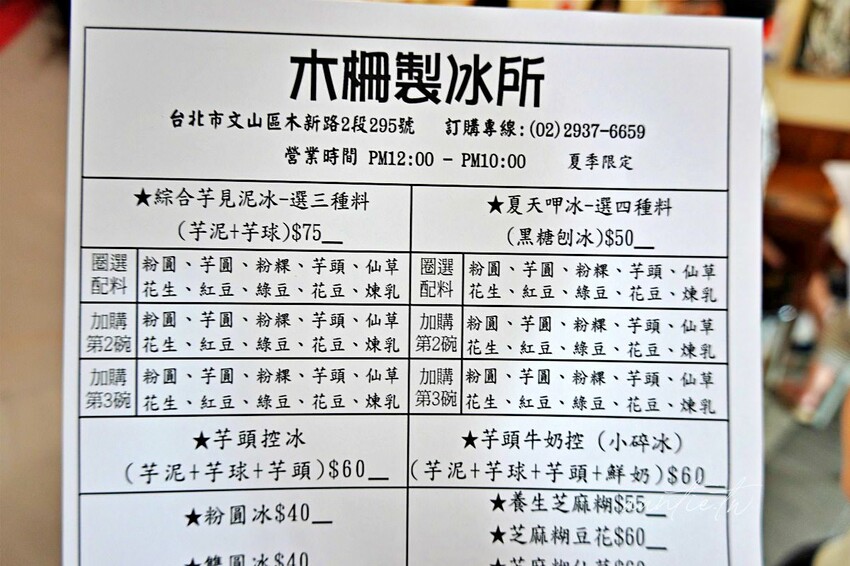 木柵製冰所
台北市文山區木新路2段295號 訂購專線:(02)2937-6659
營業時間 PM12:00 - PM10:00 夏季限定
★綜合芋見泥冰-選三種料
(芋泥+芋球)$75__
★夏天呷冰-選四種料
(黑糖刨冰)$50__
圈選配料
粉圓、芋圓、粉粿、芋頭、仙草
花生、紅豆、綠豆、花豆、煉乳
圈選配料
粉圓、芋圓、粉粿、芋頭、仙草
花生、紅豆、綠豆、花豆、煉乳
加購第2碗
粉圓、芋圓、粉粿、芋頭、仙草
花生、紅豆、綠豆、花豆、煉乳
加購第2碗
粉圓、芋圓、粉粿、芋頭、仙草
花生、紅豆、綠豆、花豆、煉乳
加購第3碗
粉圓、芋圓、粉粿、芋頭、仙草
花生、紅豆、綠豆、花豆、煉乳
加購第3碗
粉圓、芋圓、粉粿、芋頭、仙草
花生、紅豆、綠豆、花豆、煉乳
★芋頭控冰
(芋泥+芋球+芋頭)$60__
★芋頭牛奶控(小碎冰)
(芋泥+芋球+芋頭+鮮奶)$60__
★粉圓冰$40__
★雙圓冰$40
★養生芝麻糊$55__
★芝麻糊豆花$60__
★芝麻糊仙草$60